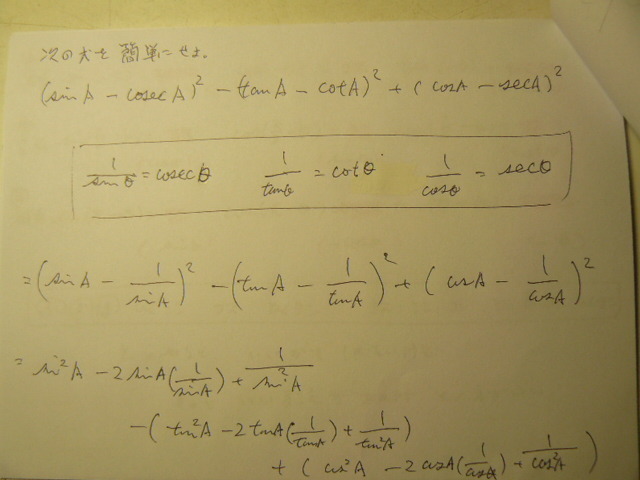 次の犬を簡単にせよ。
(sinA - cosecA)² - (tanA - cotA)² + (cosA - secA)²
1/sinθ = cosecθ 1/tanθ = cotθ 1/cosθ = secθ
= (sinA - 1/sinA)² - (tanA - 1/tanA)² + (cosA - 1/cosA)²
= sin²A - 2sinA(1/sinA) + 1/sin²A
- (tan²A - 2tanA(1/tanA) + 1/tan²A)
+ (cos²A - 2cosA(1/cosA) + 1/cos²A)